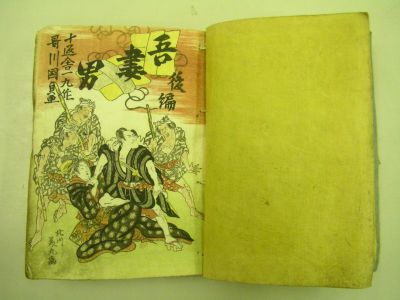 吾妻男
後編
十返舎一九作
哥川國貞画
北川美丸画